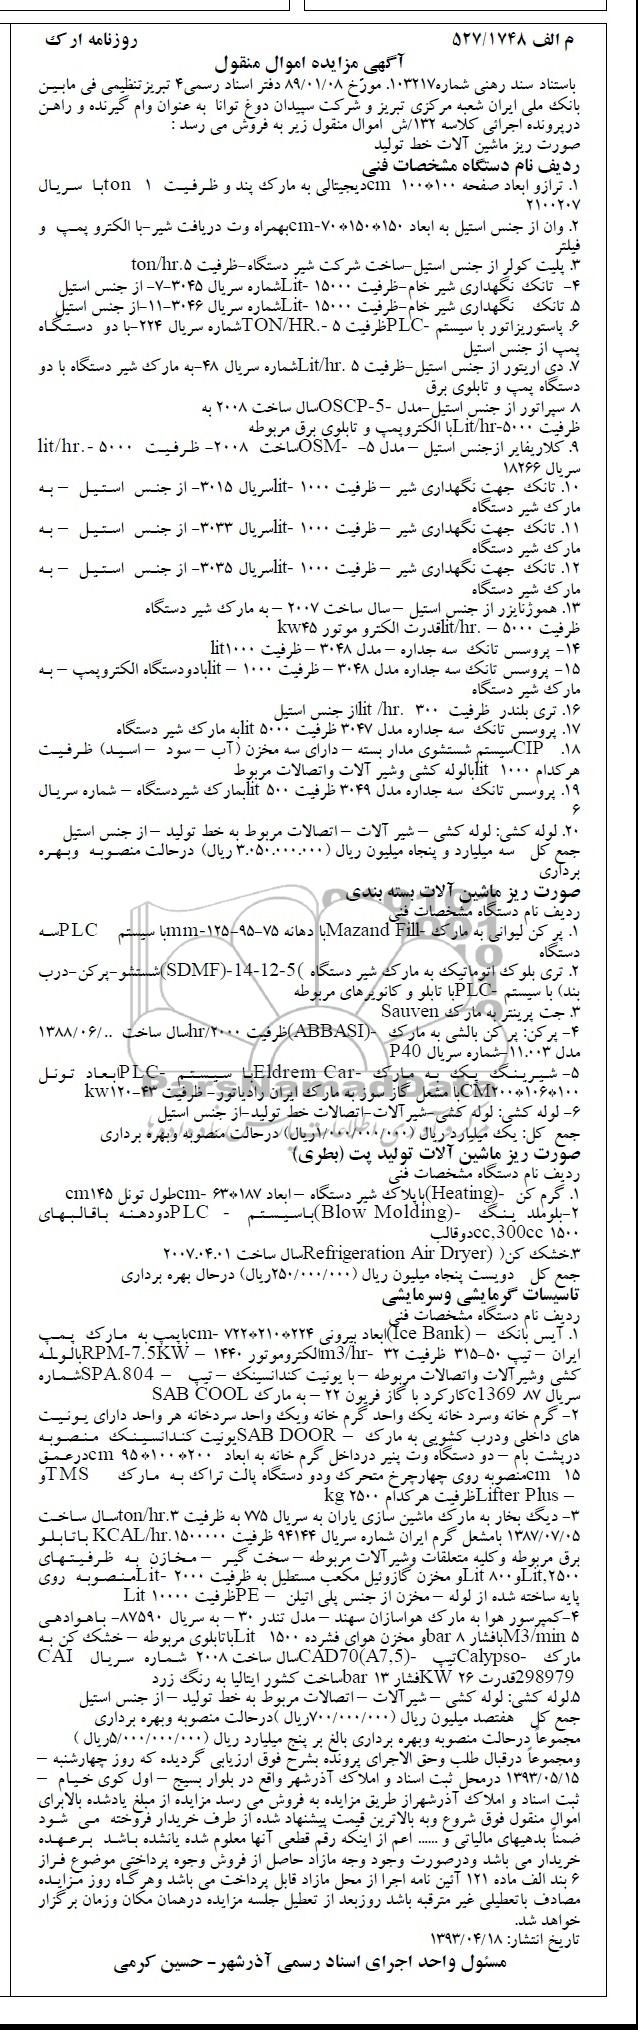 م الف ۵۲۷/۱۷۴۸
روزنامه ارک
آگهی مزایده اموال منقول
باستناد سند رهنی شماره۱۰۳۲۱۷. مورّخ ۸۹/۰۱/۰۸ دفتر اسناد رسمی۴ تبریزتنظیمی فی مابین
بانک ملی ایران شعبه مرکزی تبریز و شرکت سپیدان دوغ توانا به عنوان وام گیرنده و راهن
درپرونده اجرائی کلاسه ۱۳۲/ش اموال منقول زیر به فروش می رسد :
صورت ریز ماشین آلات خط تولید
ردیف نام دستگاه مشخصات فنی
۱. ترازو ابعاد صفحه ۱۰۰*۱۰۰ cmدیجیتالی به مارک پند و ظرفیت ۱ tonبا سریال
۲۱۰۰۲۰۷
۲. وان از جنس استیل به ابعاد ۱۵۰*۱۵۰*۷۰-cmبهمراه وت دریافت شیر-با الکترو پمپ و
فیلتر
۳. پلیت کولر از جنس استیل-ساخت شرکت شیر دستگاه-ظرفیت ۵.ton/hr
۴- تانک نگهداری شیر خام-ظرفیت ۱۵۰۰۰ -Litشماره سریال ۳۰۴۵-۷- از جنس استیل
۵. تانک نگهداری شیر خام-ظرفیت ۱۵۰۰۰ -Litشماره سریال ۳۰۴۶-۱۱-از جنس استیل
۶. پاستوریزاتور با سیستم -PLCظرفیت ۵ -.TON/HRشماره سریال ۲۲۴-با دو دستگاه
پمپ از جنس استیل
۷. دی اریتور از جنس استیل-ظرفیت ۵ .Lit/hrشماره سریال ۴۸-به مارک شیر دستگاه با دو
دستگاه پمپ و تابلوی برق
۸. سپراتور از جنس استیل-مدل -OSCP-5سال ساخت ۲۰۰۸ به
ظرفیت ۵۰۰۰-Lit/hrبا الکتروپمپ و تابلوی برق مربوطه
۹. کلاریفایر ازجنس استیل – مدل ۵- -OSMساخت ۲۰۰۸- ظرفیت ۵۰۰۰ -.lit/hr
سریال ۱۸۲۶۶
۱۰. تانک جهت نگهداری شیر – ظرفیت ۱۰۰۰ -litسریال ۳۰۱۵- از جنس استیل – به
مارک شیر دستگاه
۱۱. تانک جهت نگهداری شیر – ظرفیت ۱۰۰۰ -litسریال ۳۰۳۳- از جنس استیل – به
مارک شیر دستگاه
۱۲. تانک جهت نگهداری شیر – ظرفیت ۱۰۰۰ -litسریال ۳۰۳۵- از جنس استیل – به
مارک شیر دستگاه
۱۳. هموژنایزر از جنس استیل – سال ساخت ۲۰۰۷ – به مارک شیر دستگاه
ظرفیت ۵۰۰۰ – .lit/hrقدرت الکترو موتور ۴۵kw
۱۴- پروسس تانک سه جداره – مدل ۳۰۴۸ – ظرفیت ۱۰۰۰lit
۱۵- پروسس تانک سه جداره مدل ۳۰۴۸ – ظرفیت ۱۰۰۰ – litبادودستگاه الکتروپمپ – به
مارک شیر دستگاه
۱۶. تری بلندر ظرفیت ۳۰۰ .lit /hrاز جنس استیل
۱۷. پروسس تانک سه جداره مدل ۳۰۴۷ ظرفیت ۵۰۰۰ litبه مارک شیر دستگاه
۱۸. CIPسیستم شستشوی مدار بسته – دارای سه مخزن (آب – سود – اسید) ظرفیت
هرکدام ۱۰۰۰ litبالوله کشی وشیر آلات واتصالات مربوط
۱۹. پروسس تانک سه جداره مدل ۳۰۴۹ ظرفیت ۵۰۰ litبمارک شیردستگاه – شماره سریال
۶
۲۰. لوله کشی: لوله کشی – شیر آلات – اتصالات مربوط به خط تولید – از جنس استیل
جمع کل سه میلیارد و پنجاه میلیون ریال (۳.۰۵۰.۰۰۰.۰۰۰ ریال) درحالت منصوبه وبهره
برداری
صورت ریز ماشین آلات بسته بندی
ردیف نام دستگاه مشخصات فنی
۱. پر کن لیوانی به مارک -Mazand Fillبا دهانه ۷۵-۹۵-۱۲۵-mmبا سیستم PLCسه
دستگاه
۲. تری بلوک اتوماتیک به مارک شیر دستگاه )5-12-14-(SDMF)شستشو-پرکن-درب
بند) با سیستم -PLCبا تابلو و کانویرهای مربوطه
۳. جت پرینتر به مارک Sauven
۴- پرکن: پر کن بالشی به مارک -(ABBASI)ظرفیت ۲۰۰۰/hrسال ساخت ../۱۳۸۸/۰۶
مدل ۱۱.۰۰۳-شماره سریال P40
۵- شیرینگ پک به مارک -Eldrem Carبا سیستم -PLCابعاد تونل
۱۰۰*۱۰۶*۲۰۰CMبا مشعل گاز سوز به مارک ایران رادیاتور- ظرفیت ۴۳-۱۲۰kw
۶- لوله کشی: لوله کشی-شیرآلات-اتصالات خط تولید-از جنس استیل
جمع کل: یک میلیارد ریال (۱/۰۰۰/۰۰۰/۰۰۰ریال) درحالت منصوبه وبهره برداری
صورت ریز ماشین آلات تولید پت (بطری)
ردیف نام دستگاه مشخصات فنی
۱. گرم کن -(Heating)باپلاک شیر دستگاه – ابعاد ۱۸۷*۶۳ -cmطول تونل ۱۴۵cm
۲-بلومولد ینگ -(Blow Molding)باسیستم - PLCدودهنه باقالبهای
۱۵۰۰ cc,300ccدوقالب
۳.خشک کن( (Refrigeration Air Dryerسال ساخت ۲۰۰۷.۰۴.۰۱
جمع کل دویست پنجاه میلیون ریال (۲۵۰/۰۰۰/۰۰۰ریال) درحال بهره برداری
تاسیسات گرمایشی وسرمایشی
ردیف نام دستگاه مشخصات فنی
۱. آیس بانک – (Ice Bank)ابعاد بیرونی ۲۲۴*۲۱۰*۷۲۲ -cmباپمپ به مارک پمپ
ایران – تیپ ۵۰-۳۱۵ ظرفیت ۳۲ -m3/hrالکتروموتور ۱۴۴۰ – RPM-7.5KWبالوله
کشی وشیرآلات واتصالات مربوطه – با یونیت کندانسینک – تیپ – SPA.804شماره
سریال ۸۷ c1369کارکرد با گاز فریون ۲۲ – به مارک SAB COOL
۲- گرم خانه وسرد خانه یک واحد گرم خانه ویک واحد سردخانه هر واحد دارای یونیت
های داخلی ودرب کشویی به مارک – SAB DOORیونیت کندانسینک منصوبه
درپشت بام – دو دستگاه وت پنیر درداخل گرم خانه به ابعاد ۲۰۰*۱۰۰*۹۵ cmدرعمق
۱۵ cmمنصوبه روی چهارچرخ متحرک ودو دستگاه پالت تراک به مارک TMSو
– Lifter Plusظرفیت هرکدام ۲۵۰۰ kg
۳- دیگ بخار به مارک ماشین سازی یاران به سریال ۷۷۵ به ظرفیت ۳.ton/hrسال ساخت
۱۳۸۷/۰۷/۰۵ بامشعل گرم ایران شماره سریال ۹۴۱۴۴ ظرفیت ۱۵۰۰۰۰۰.KCAL/hrباتابلو
برق مربوطه وکلیه متعلقات وشیرآلات مربوطه – سخت گیر – مخازن به ظرفیتهای
۲۵۰۰,Litو۸۰۰ Litو مخزن گازوئیل مکعب مستطیل به ظرفیت ۲۰۰۰ -Litمنصوبه روی
پایه ساخته شده از لوله – مخزن از جنس پلی اتیلن – PEظرفیت ۱۰۰۰۰ Lit
۴-کمپرسور هوا به مارک هواسازان سهند – مدل تندر ۳۰ – به سریال ۸۷۵۹۰- باهوادهی
۵ M3/minبافشار ۸ barو مخزن هوای فشرده ۱۵۰۰ Litباتابلوی مربوطه – خشک کن به
مارک -Calypsoتیپ -(A7,5)CAD70سال ساخت ۲۰۰۸ شماره سریال CAI
298979قدرت ۲۶ KWفشار ۱۳ barساخت کشور ایتالیا به رنگ زرد
۵.لوله کشی: لوله کشی – شیرآلات – اتصالات مربوط به خط تولید – از جنس استیل
جمع کل هفتصد میلیون ریال (۷۰۰/۰۰۰/۰۰۰ریال )درحالت منصوبه وبهره برداری
مجموعاً درحالت منصوبه وبهره برداری بالغ بر پنج میلیارد ریال (۵/۰۰۰/۰۰۰/۰۰۰ریال )
ومجموعاً درقبال طلب وحق الاجرای پرونده بشرح فوق ارزیابی گردیده که روز چهارشنبه –
۱۳۹۳/۰۵/۱۵ درمحل ثبت اسناد و املاک آذرشهر واقع در بلوار بسیج – اول کوی خیام –
ثبت اسناد و املاک آذرشهراز طریق مزایده به فروش می رسد مزایده از مبلغ یادشده بالابرای
اموال منقول فوق شروع وبه بالاترین قیمت پیشنهاد شده از طرف خریدار فروخته می شود
ضمناً بدهیهای مالیاتی و ...... اعم از اینکه رقم قطعی آنها معلوم شده یانشده باشد برعهده
خریدار می باشد ودرصورت وجود وجه مازاد حاصل از فروش وجوه پرداختی موضوع فراز
۶ بند الف ماده ۱۲۱ آئین نامه اجرا از محل مازاد قابل پرداخت می باشد وهرگاه روز مزایده
مصادف باتعطیلی غیر مترقبه باشد روزبعد از تعطیل جلسه مزایده درهمان مکان وزمان برگزار
خواهد شد.
تاریخ انتشار: ۱۳۹۳/۰۴/۱۸
مسئول واحد اجرای اسناد رسمی آذرشهر- حسین کرمی
ParsNamadData